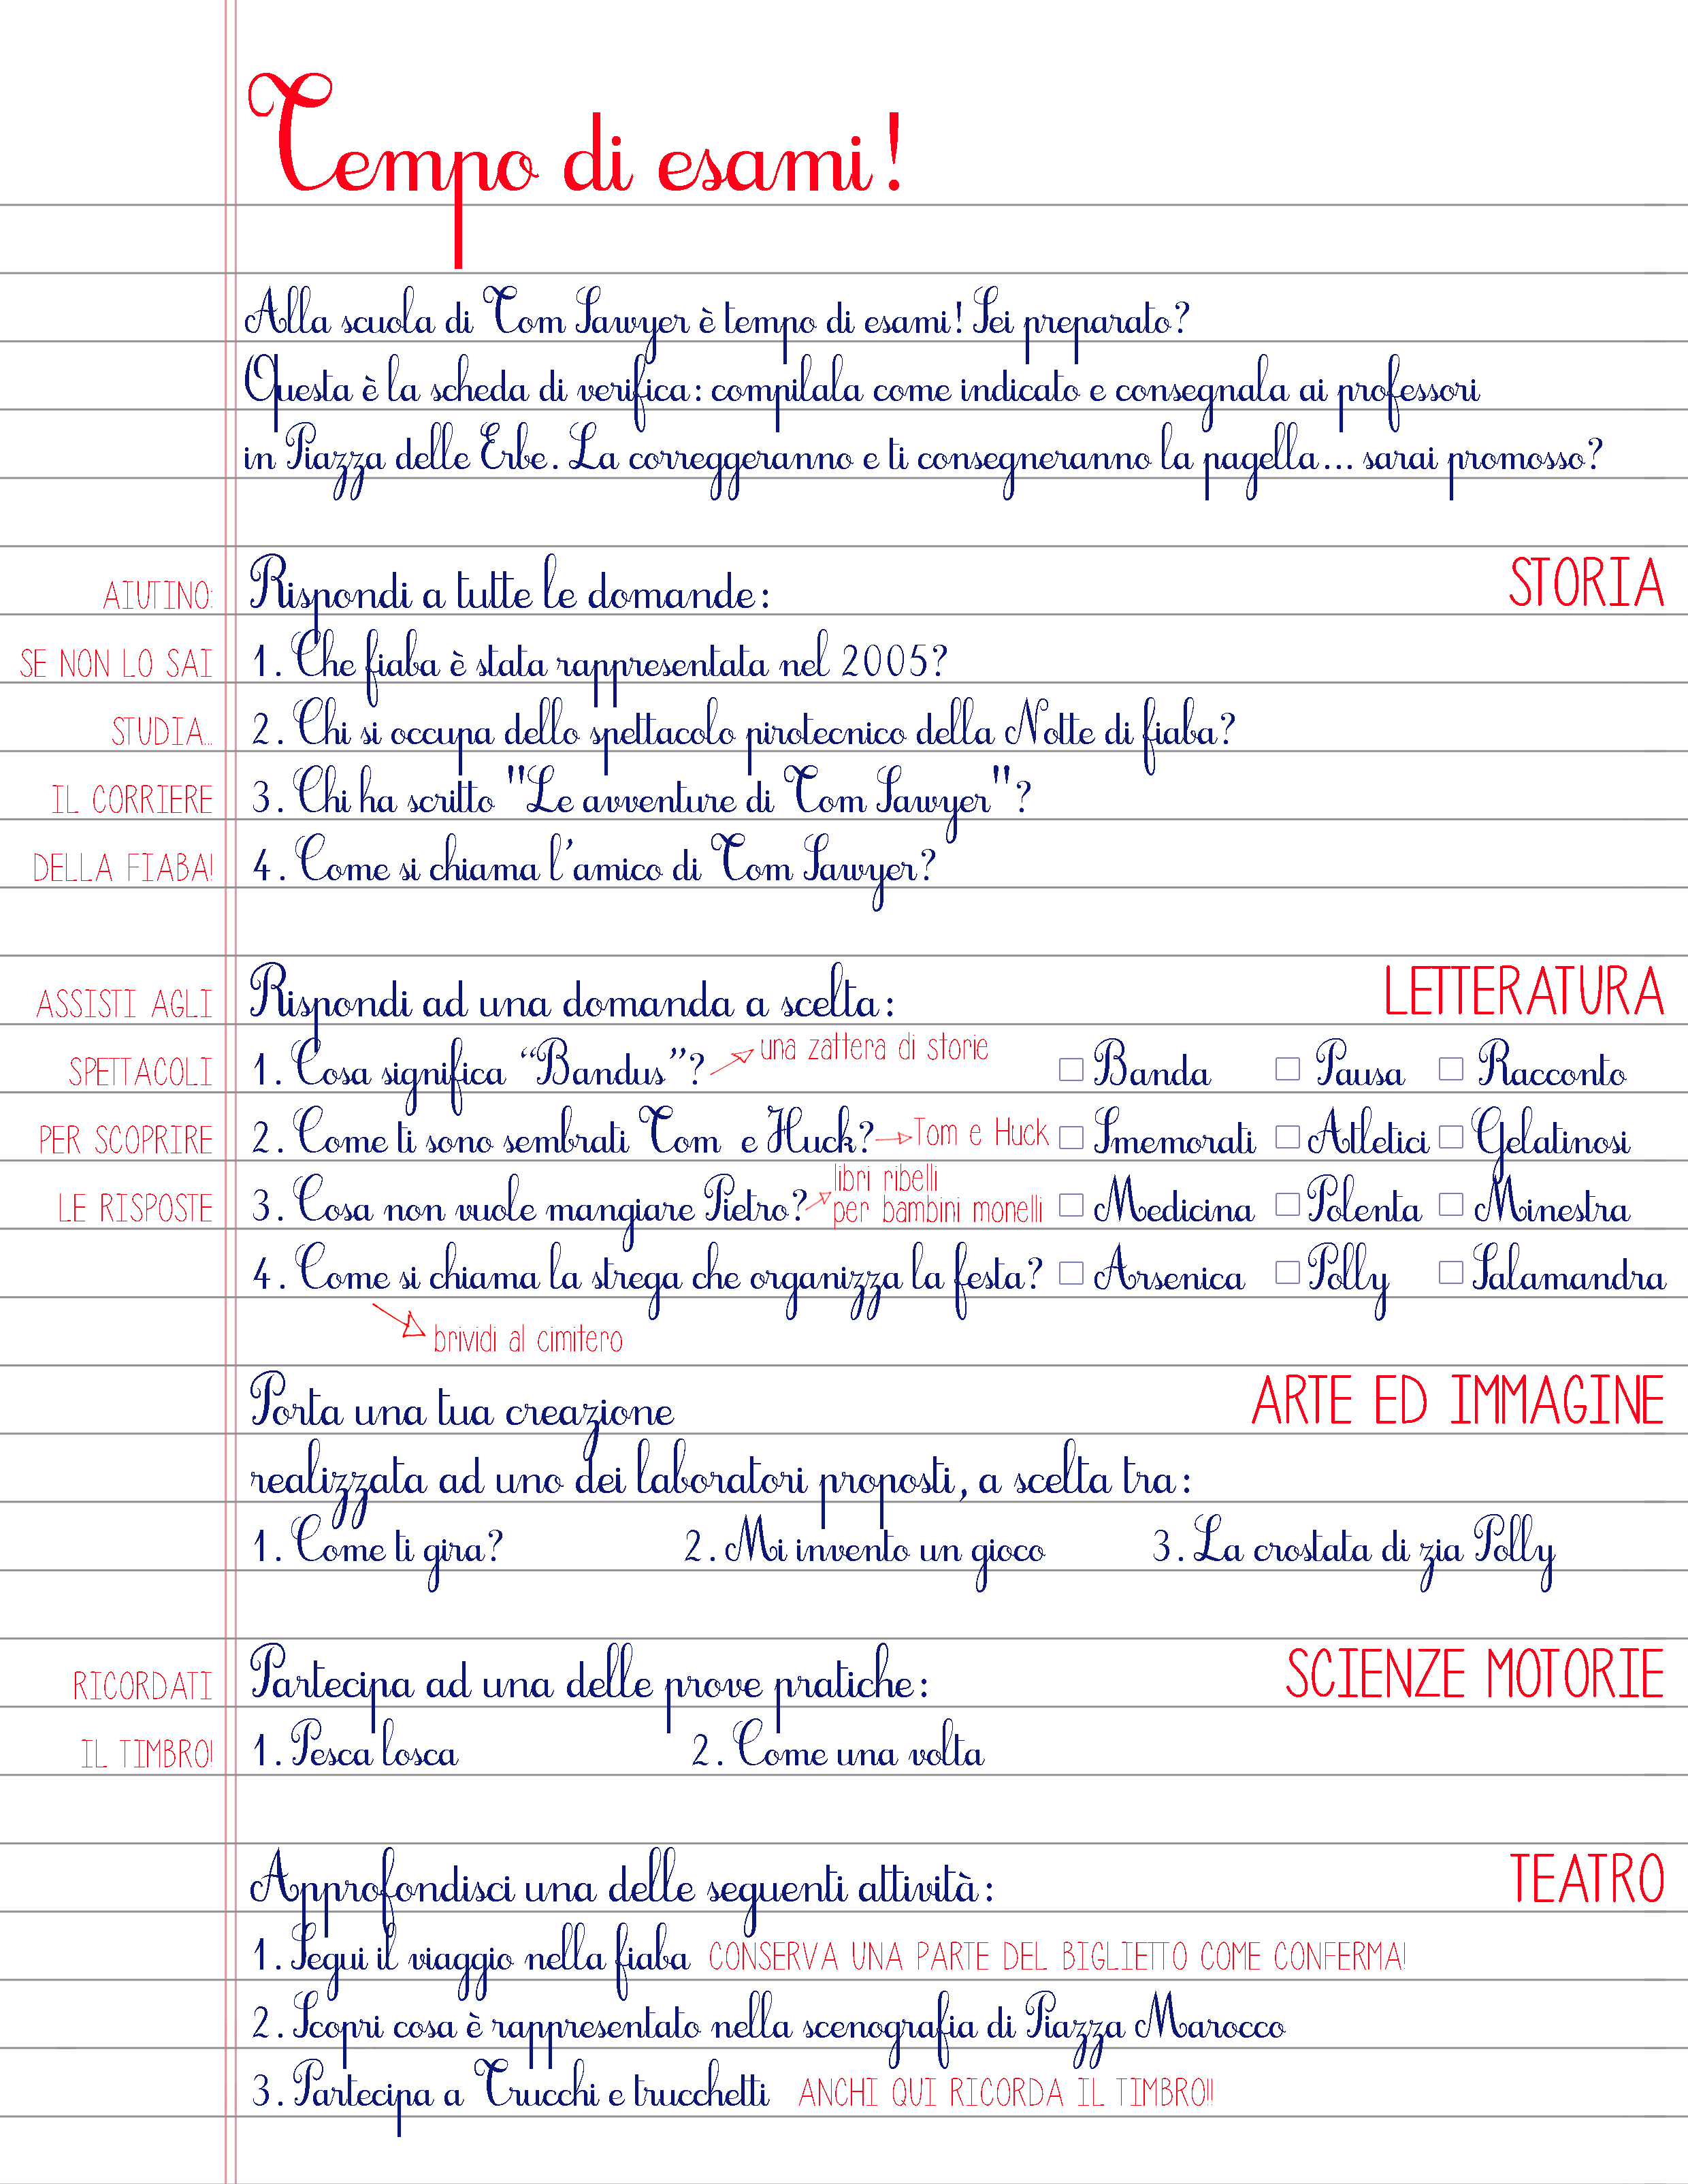 Tempo di esami!
Alla scuola di Tom Sawyer è tempo di esami! Sei preparato?
Questa è la scheda di verifica: compilala come indicato e consegnala ai professori
in Piazza delle Erbe. La correggeranno e ti consegneranno la pagella... sarai promosso?
AIUTINO: Rispondi a tutte le domande: STORIA
SE NON LO SAI 1. Che fiaba è stata rappresentata nel 2005?
STUDIA... 2. Chi si occupa dello spettacolo pirotecnico della Notte di fiaba?
IL CORRIERE 3. Chi ha scritto "Le avventure di Tom Sawyer"?
DELLA FIABA! 4. Come si chiama l'amico di Tom Sawyer?
ASSISTI AGLI Rispondi ad una domanda a scelta: LETTERATURA
SPETTACOLI 1. Cosa significa “Bandus”? una zattera di storie Banda Pausa Racconto
PER SCOPRIRE 2. Come ti sono sembrati Tom e Huck? Tom e Huck Smemorati Atletici Gelatinosi
LE RISPOSTE 3. Cosa non vuole mangiare Pietro? libri ribelli per bambini monelli Medicina Polenta Minestra
4. Come si chiama la strega che organizza la festa? Arsenica Polly Salamandra
brividi al cimitero
Porta una tua creazione ARTE ED IMMAGINE
realizzata ad uno dei laboratori proposti, a scelta tra:
1. Come ti gira? 2. Mi invento un gioco 3. La crostata di zia Polly
RICORDATI Partecipa ad una delle prove pratiche: SCIENZE MOTORIE
IL TIMBRO! 1. Pesca losca 2. Come una volta
Approfondisci una delle seguenti attività: TEATRO
1. Segui il viaggio nella fiaba CONSERVA UNA PARTE DEL BIGLIETTO COME CONFERMA!
2. Scopri cosa è rappresentato nella scenografia di Piazza Marocco
3. Partecipa a Trucchi e trucchetti ANCHI QUI RICORDA IL TIMBRO!!